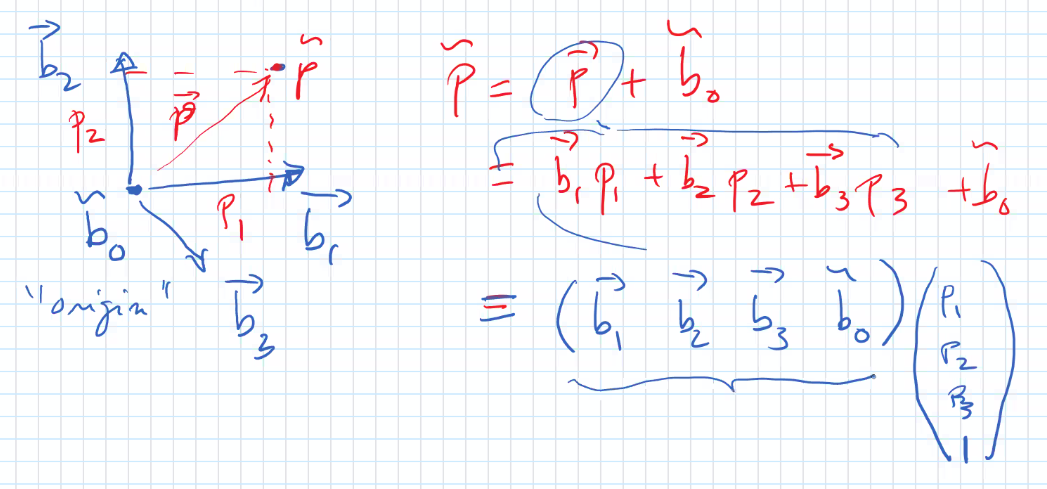 b⃗₂
p₂
p⃗
p̃
b̃₀
p₁
b⃗₁
"origin"
b⃗₃
p̃ = p⃗ + b̃₀
= b⃗₁ p₁ + b⃗₂ p₂ + b⃗₃ p₃ + b̃₀
≡ ( b⃗₁ b⃗₂ b⃗₃ b̃₀ ) ( p₁
p₂
p₃
1 )